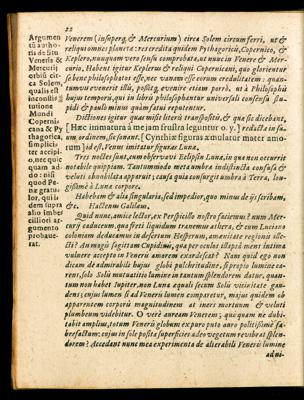 22
Venerem (inseperq, & Mercurium) circa Solem circumferri, ut &
reliqui omnes planeta: res credita quidem Pythagoricis, Copernico, &
Keplero, nunquam vero sensu comprobata, ut nunc in Venere & Mer-
curio. Habent igitur Keplerus & reliqui Copernicani, quo glorientur
se bene philosophatos esse, nec vanam esse eorum credulitatem: quan-
tumvis evenerit illis, & eveniet etiam porrò, ut à Philosophis
hujus temporis, qui in libris philosophantur universali consensu stu-
pidi & paulo minus quàm fatui reputentur.
Dictiones igitur quas misi literis transpositis, & quæ sic dicebant,
[Hæc immatura à me jam frustra leguntur o. y.] redactæ in su-
um ordinem, sic sonant, [Cynthiæ figuras æmulatur mater amo-
rum] id est, Venus imitatur figuras Lunæ.
Tres noctes sunt, cum observavi Eclipsin Lunæ, in qua non occurrit
notabile quippiam. Tantummodo meta umbræ indistincta confusa &
veluti obnubilata apparuit; causa quia consurgit umbra à Terra, lon-
gissimè à Lunæ corpore.
Habebam & alia singularia, sed impedior, quo minus de ijs scribam,
&c. Hactenus Galilæus.
Quid nunc, amice lector, ex Perspicillo nostro faciemus? num Mer-
curij caduceum, quo freti liquidum tranemus æthera, & cum Luciano
coloniam deducamus in desertum Hesperum, amœnitate regionis ille-
cti? An magis sagittam Cupidinis, qua per oculos illapsa mens intima
vulnere accepto in Veneris amorem exardescat? Nam quid ego non
dicam de admirabili hujus globi pulchritudine, si proprio lumine ca-
rens, solo Solis mutuatitio lumine in tantum splendorem datur, quan-
tum non habet Jupiter, non Luna æquali secum Solis vicinitate gau-
dens; cujus lumen si ad Veneris lumen comparetur, majus quidem ob
apparentem corporis magnitudinem at iners mortuum & veluti
plumbeum videbitur. O verè auream Venerem; quisquam ne dubi-
tabit amplius, totum Veneris globum ex puro puto auro politissimè fa-
brefactum: cujus in sole posita superficies adeo vegetum revibrat splen-
dorem? Accedant nunc mea experimenta de alterabili Veneris lumine
ad ni-
Argumen
tū autho-
ris de situ
Veneris &
Mercurij
orbiū cir-
ca Solem,
qualis est
in constitu
tione
Mundi
Coperni-
cana & Py
thagorica,
simplici-
ter accipi-
o, nec quic
quam ad-
do: nisi
quod Pe-
næ gratu-
lor, qui i-
dem supra
alio imbe-
cilliori ar-
gumento
probave-
rat.